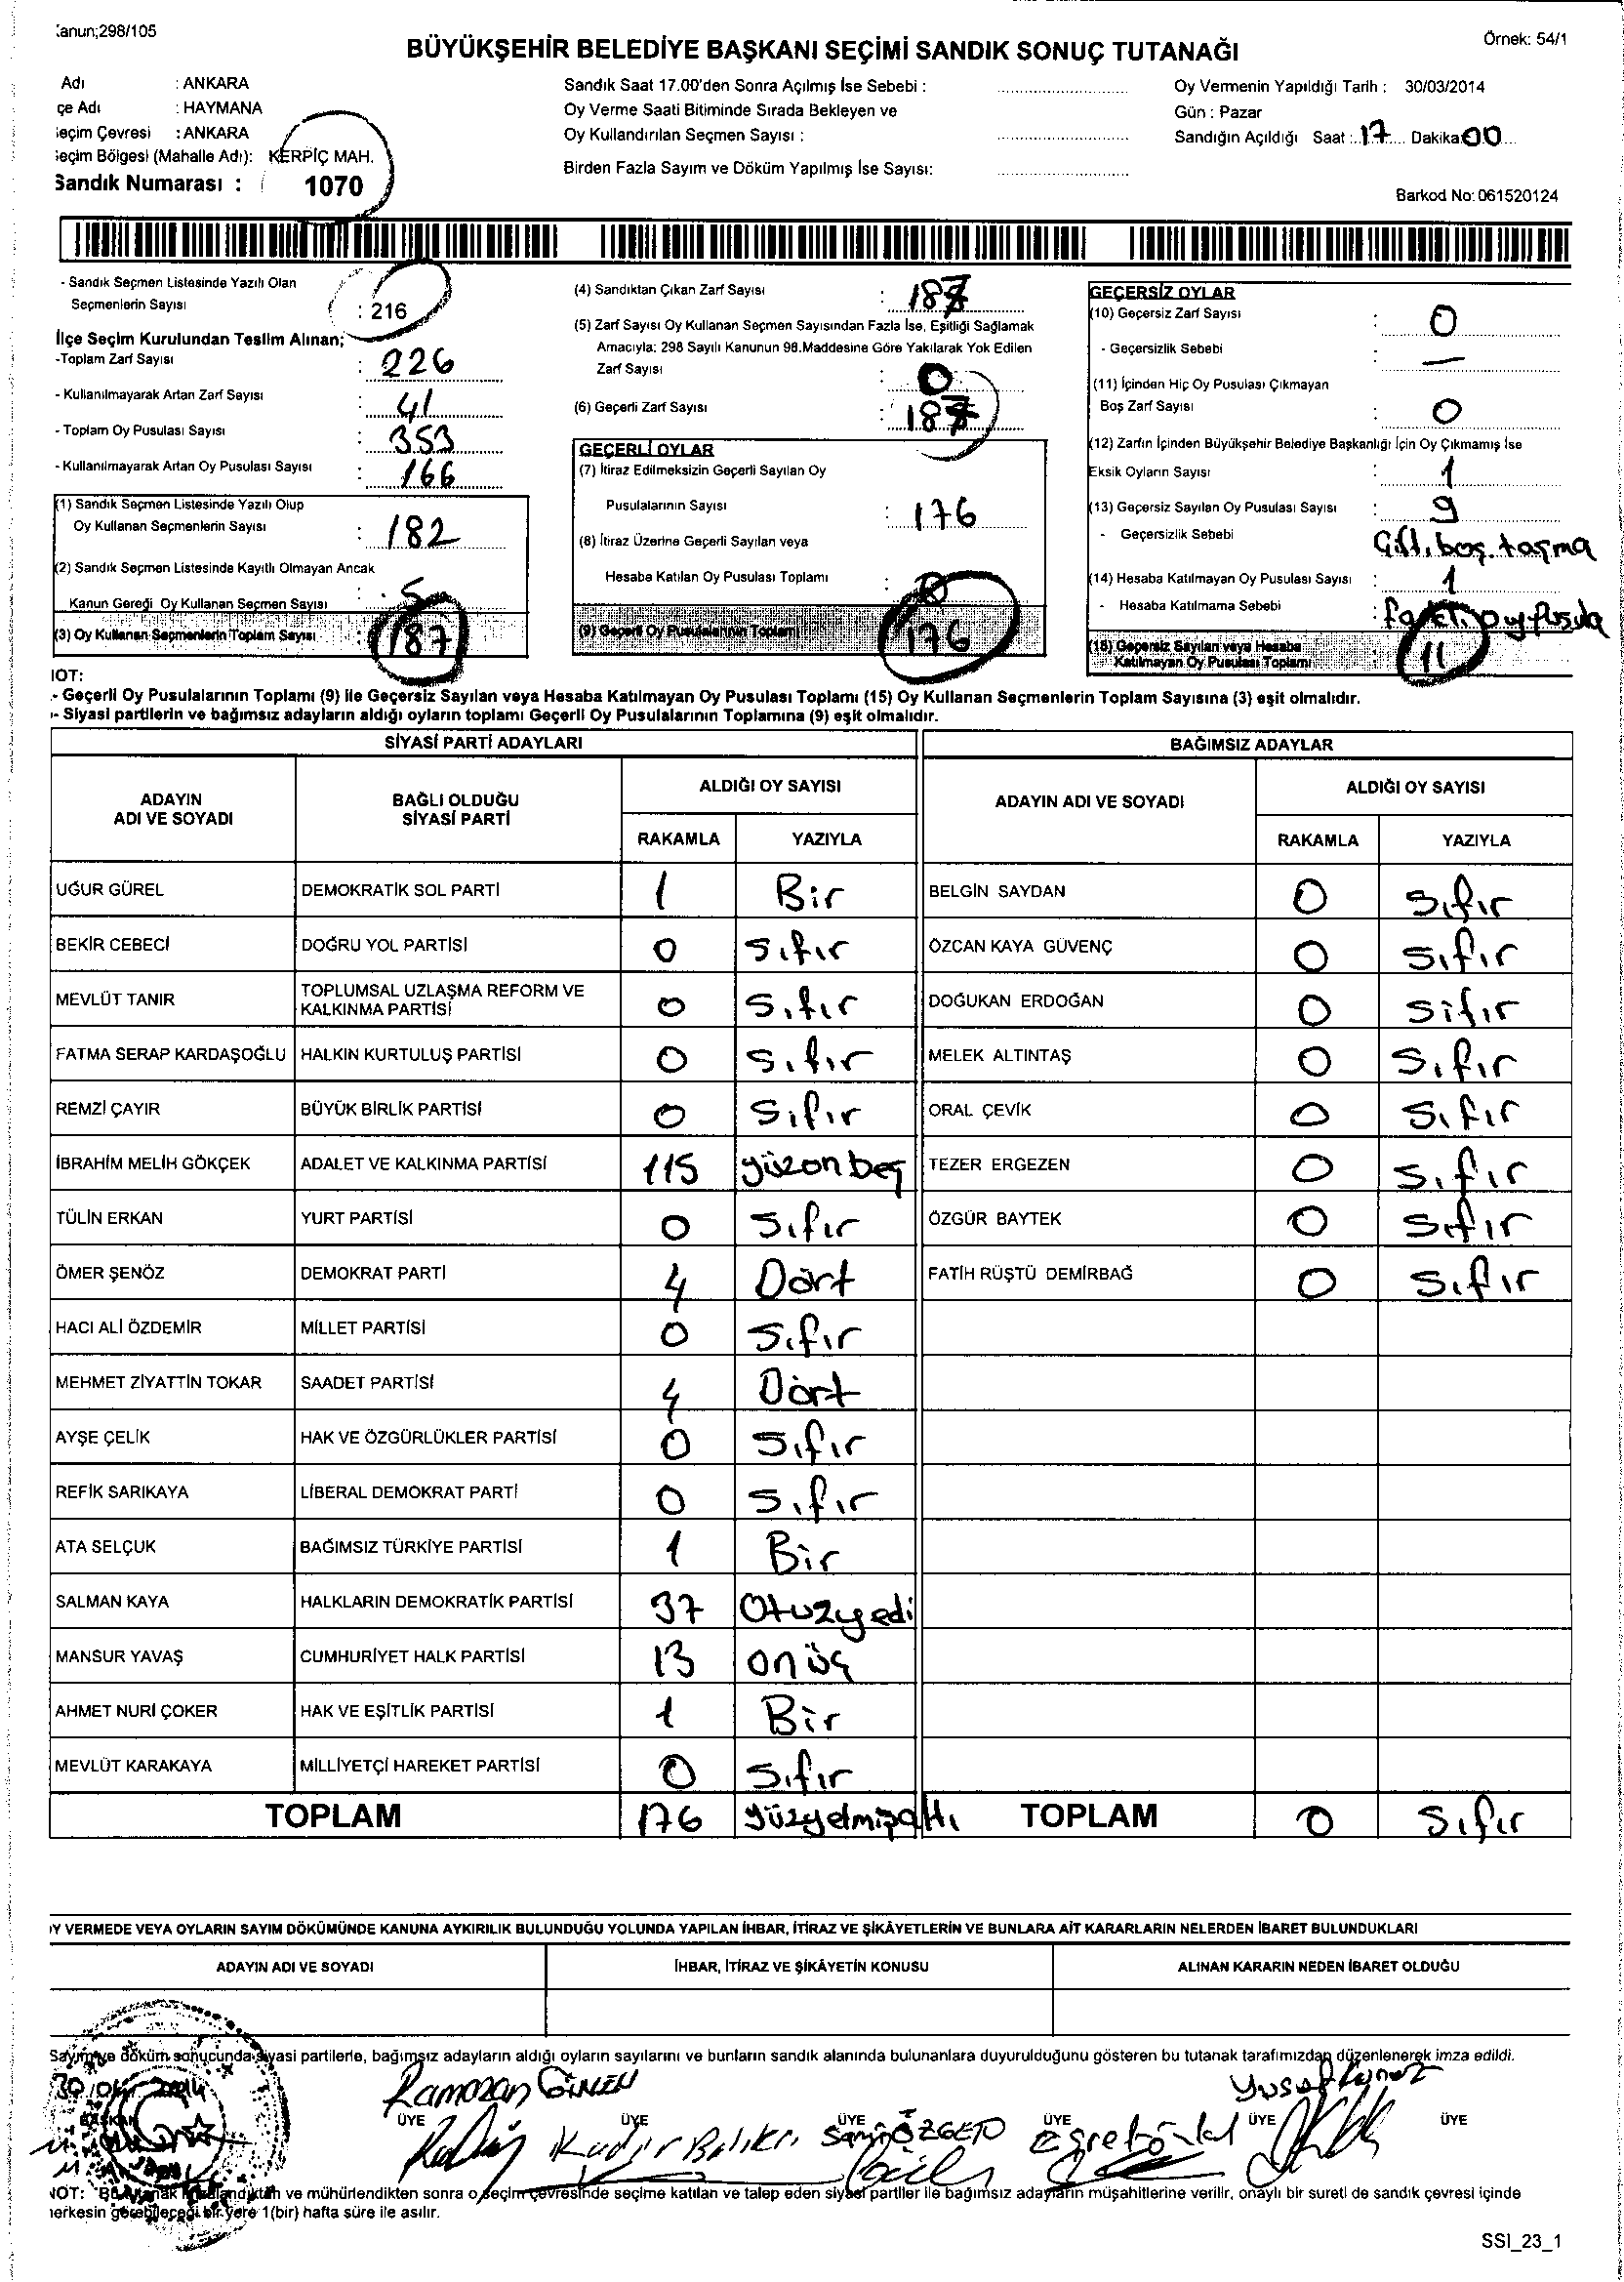 anun;298/105
Örnek: 54/1
BÜYÜKŞEHİR BELEDİYE BAŞKANI SEÇİMİ SANDIK SONUÇ TUTANAĞI
Adı : ANKARA
çe Adı : HAYMANA
eçim Çevresi : ANKARA
eçim Bölgesi (Mahalle Adı): KERPİÇ MAH.
Sandık Numarası : 1070
Sandık Saat 17.00'den Sonra Açılmış İse Sebebi :
Oy Verme Saati Bitiminde Sırada Bekleyen ve
Oy Kullandırılan Seçmen Sayısı :
Birden Fazla Sayım ve Döküm Yapılmış İse Sayısı:
Oy Vermenin Yapıldığı Tarih : 30/03/2014
Gün : Pazar
Sandığın Açıldığı Saat : 17 Dakika 00
Barkod No: 061520124
- Sandık Seçmen Listesinde Yazılı Olan
Seçmenlerin Sayısı : 216
İlçe Seçim Kurulundan Teslim Alınan;
-Toplam Zarf Sayısı : 226
- Kullanılmayarak Artan Zarf Sayısı : 41
- Toplam Oy Pusulası Sayısı : 353
- Kullanılmayarak Artan Oy Pusulası Sayısı : 166
(1) Sandık Seçmen Listesinde Yazılı Olup
Oy Kullanan Seçmenlerin Sayısı : 182
(2) Sandık Seçmen Listesinde Kayıtlı Olmayan Ancak
Kanun Gereği Oy Kullanan Seçmen Sayısı : 5
(3) Oy Kullanan Seçmenlerin Toplam Sayısı : 187
(4) Sandıktan Çıkan Zarf Sayısı : 187
(5) Zarf Sayısı Oy Kullanan Seçmen Sayısından Fazla İse, Eşitliği Sağlamak
Amacıyla: 298 Sayılı Kanunun 98.Maddesine Göre Yakılarak Yok Edilen
Zarf Sayısı : 0
(6) Geçerli Zarf Sayısı : 187
GEÇERLİ OYLAR
(7) İtiraz Edilmeksizin Geçerli Sayılan Oy
Pusulalarının Sayısı : 176
(8) İtiraz Üzerine Geçerli Sayılan veya
Hesaba Katılan Oy Pusulası Toplamı : 0
(9) Geçerli Oy Pusulalarının Toplamı 176
GEÇERSİZ OYLAR
(10) Geçersiz Zarf Sayısı : 0
- Geçersizlik Sebebi : —
(11) İçinden Hiç Oy Pusulası Çıkmayan
Boş Zarf Sayısı : 0
(12) Zarfın İçinden Büyükşehir Belediye Başkanlığı İçin Oy Çıkmamış İse
Eksik Oyların Sayısı : 1
(13) Geçersiz Sayılan Oy Pusulası Sayısı : 9
- Geçersizlik Sebebi Çift, boş. taşma
(14) Hesaba Katılmayan Oy Pusulası Sayısı : 1
- Hesaba Katılmama Sebebi : farklı oy pusula
(15) Geçersiz Sayılan veya Hesaba
Katılmayan Oy Pusulası Toplamı : 11
NOT:
- Geçerli Oy Pusulalarının Toplamı (9) ile Geçersiz Sayılan veya Hesaba Katılmayan Oy Pusulası Toplamı (15) Oy Kullanan Seçmenlerin Toplam Sayısına (3) eşit olmalıdır.
- Siyasi partilerin ve bağımsız adayların aldığı oyların toplamı Geçerli Oy Pusulalarının Toplamına (9) eşit olmalıdır.
SİYASİ PARTİ ADAYLARI
ADAYIN ADI VE SOYADI BAĞLI OLDUĞU SİYASİ PARTİ ALDIĞI OY SAYISI
RAKAMLA YAZIYLA
UĞUR GÜREL DEMOKRATİK SOL PARTİ 1 Bir
BEKİR CEBECİ DOĞRU YOL PARTİSİ 0 sıfır
MEVLÜT TANIR TOPLUMSAL UZLAŞMA REFORM VE KALKINMA PARTİSİ 0 sıfır
FATMA SERAP KARDAŞOĞLU HALKIN KURTULUŞ PARTİSİ 0 sıfır
REMZİ ÇAYIR BÜYÜK BİRLİK PARTİSİ 0 sıfır
İBRAHİM MELİH GÖKÇEK ADALET VE KALKINMA PARTİSİ 115 yüzonbeş
TÜLİN ERKAN YURT PARTİSİ 0 sıfır
ÖMER ŞENÖZ DEMOKRAT PARTİ 4 Dört
HACI ALİ ÖZDEMİR MİLLET PARTİSİ 0 sıfır
MEHMET ZİYATTİN TOKAR SAADET PARTİSİ 4 Dört
AYŞE ÇELİK HAK VE ÖZGÜRLÜKLER PARTİSİ 0 sıfır
REFİK SARIKAYA LİBERAL DEMOKRAT PARTİ 0 sıfır
ATA SELÇUK BAĞIMSIZ TÜRKİYE PARTİSİ 1 Bir
SALMAN KAYA HALKLARIN DEMOKRATİK PARTİSİ 37 Otuzyedi
MANSUR YAVAŞ CUMHURİYET HALK PARTİSİ 13 onüç
AHMET NURİ ÇOKER HAK VE EŞİTLİK PARTİSİ 1 Bir
MEVLÜT KARAKAYA MİLLİYETÇİ HAREKET PARTİSİ 0 sıfır
TOPLAM 176 yüzyetmişaltı
BAĞIMSIZ ADAYLAR
ADAYIN ADI VE SOYADI ALDIĞI OY SAYISI
RAKAMLA YAZIYLA
BELGİN SAYDAN 0 sıfır
ÖZCAN KAYA GÜVENÇ 0 sıfır
DOĞUKAN ERDOĞAN 0 sıfır
MELEK ALTINTAŞ 0 sıfır
ORAL ÇEVİK 0 sıfır
TEZER ERGEZEN 0 sıfır
ÖZGÜR BAYTEK 0 sıfır
FATİH RÜŞTÜ DEMİRBAĞ 0 sıfır
TOPLAM 0 sıfır
Y VERMEDE VEYA OYLARIN SAYIM DÖKÜMÜNDE KANUNA AYKIRILIK BULUNDUĞU YOLUNDA YAPILAN İHBAR, İTİRAZ VE ŞİKÂYETLERİN VE BUNLARA AİT KARARLARIN NELERDEN İBARET BULUNDUKLARI
ADAYIN ADI VE SOYADI İHBAR, İTİRAZ VE ŞİKÂYETİN KONUSU ALINAN KARARIN NEDEN İBARET OLDUĞU
Sayım ve döküm sonucunda siyasi partilerle, bağımsız adayların aldığı oyların sayılarını ve bunların sandık alanında bulunanlara duyurulduğunu gösteren bu tutanak tarafımızdan düzenlenerek imza edildi.
Ramazan Yusuf
BAŞKAN ÜYE ÜYE ÜYE ÜYE ÜYE ÜYE
Kadir
NOT: Bu tutanak imzalandıktan ve mühürlendikten sonra o seçim çevresinde seçime katılan ve talep eden siyasi partiler ile bağımsız adayların müşahitlerine verilir, onaylı bir sureti de sandık çevresi içinde
herkesin görebileceği bir yere 1(bir) hafta süre ile asılır.
SSI_23_1